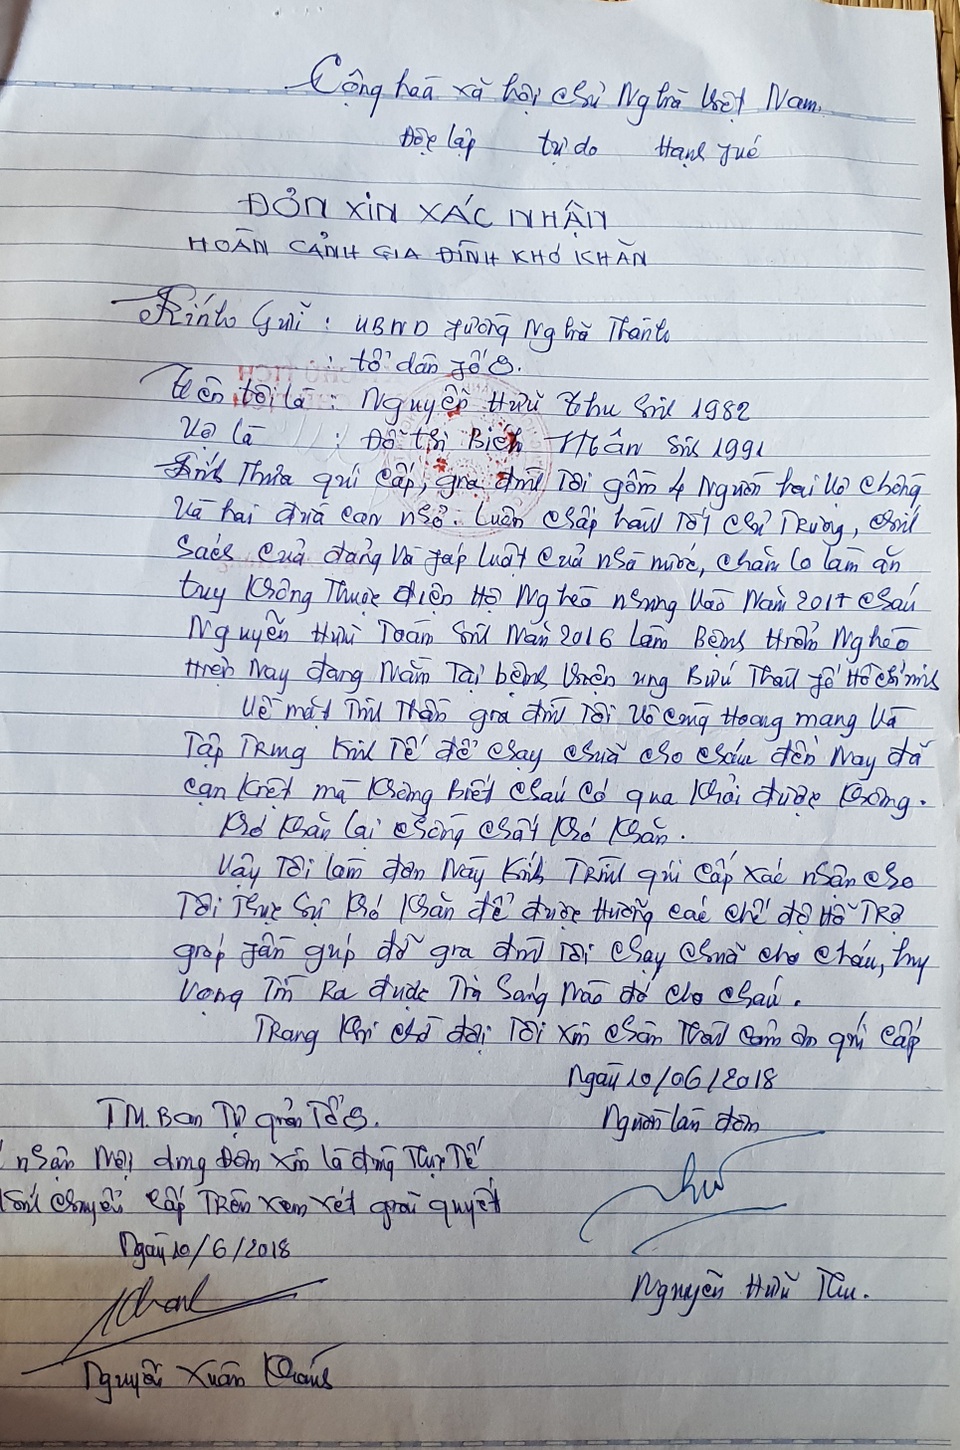 Cộng hoà xã hội chủ Nghĩa Việt Nam.
Độc lập tự do Hạnh fúc
ĐƠN XIN XÁC NHẬN
HOÀN CẢNH GIA ĐÌNH KHÓ KHĂN
Kính Gửi : UBND fường Nghĩa Thành
: tổ dân fố 8.
Tên tôi là : Nguyễn Hữu Thu Sinh 1982
Vợ là : Đỗ thị Bích Nhân Sinh 1991
Kính Thưa quí cấp, gia đình Tôi gồm 4 Người hai Vợ chồng
Và hai đứa con nhỏ. Luôn chấp hành Tốt chủ Trương, chính
sách của đảng và fáp luật của nhà nước, chăm lo làm ăn
tuy không Thuộc diện Hộ Nghèo nhưng vào Năm 2017 cháu
Nguyễn Hữu Toàn Sinh Năm 2016 Lâm Bệnh Hiểm Nghèo
Hiện Nay đang Nằm Tại bệnh viện ung Bứu Thành fố Hồ chí minh
Về mặt Tinh Thần gia đình Tôi vô cùng Hoang mang Và
Tập Trung Kinh Tế để chạy chữa cho cháu đến Nay đã
cạn kiệt mà không Biết cháu có qua khỏi được không.
Khó khăn lại chồng chất khó khăn.
Vậy Tôi làm đơn Này Kính Trình quí cấp xác nhận cho
Tôi Thực Sự khó khăn để được Hưởng các chế độ Hỗ Trợ
góp fần giúp đỡ gia đình Tôi chạy chữa cho cháu, hy
vọng Tìm Ra được Tia Sáng Nào đó cho cháu.
Trong khi chờ đợi Tôi xin chân Thành cảm ơn quí cấp
Ngày 10/06/2018
TM. Ban Tự quản Tổ 8. Người làm đơn
nhận Nội dung Đơn xin là đúng Thực Tế
Kính chuyển cấp Trên xem xét giải quyết
Ngày 10/6/2018
Nguyễn Hữu Thu.
Nguyễn Xuân Khánh